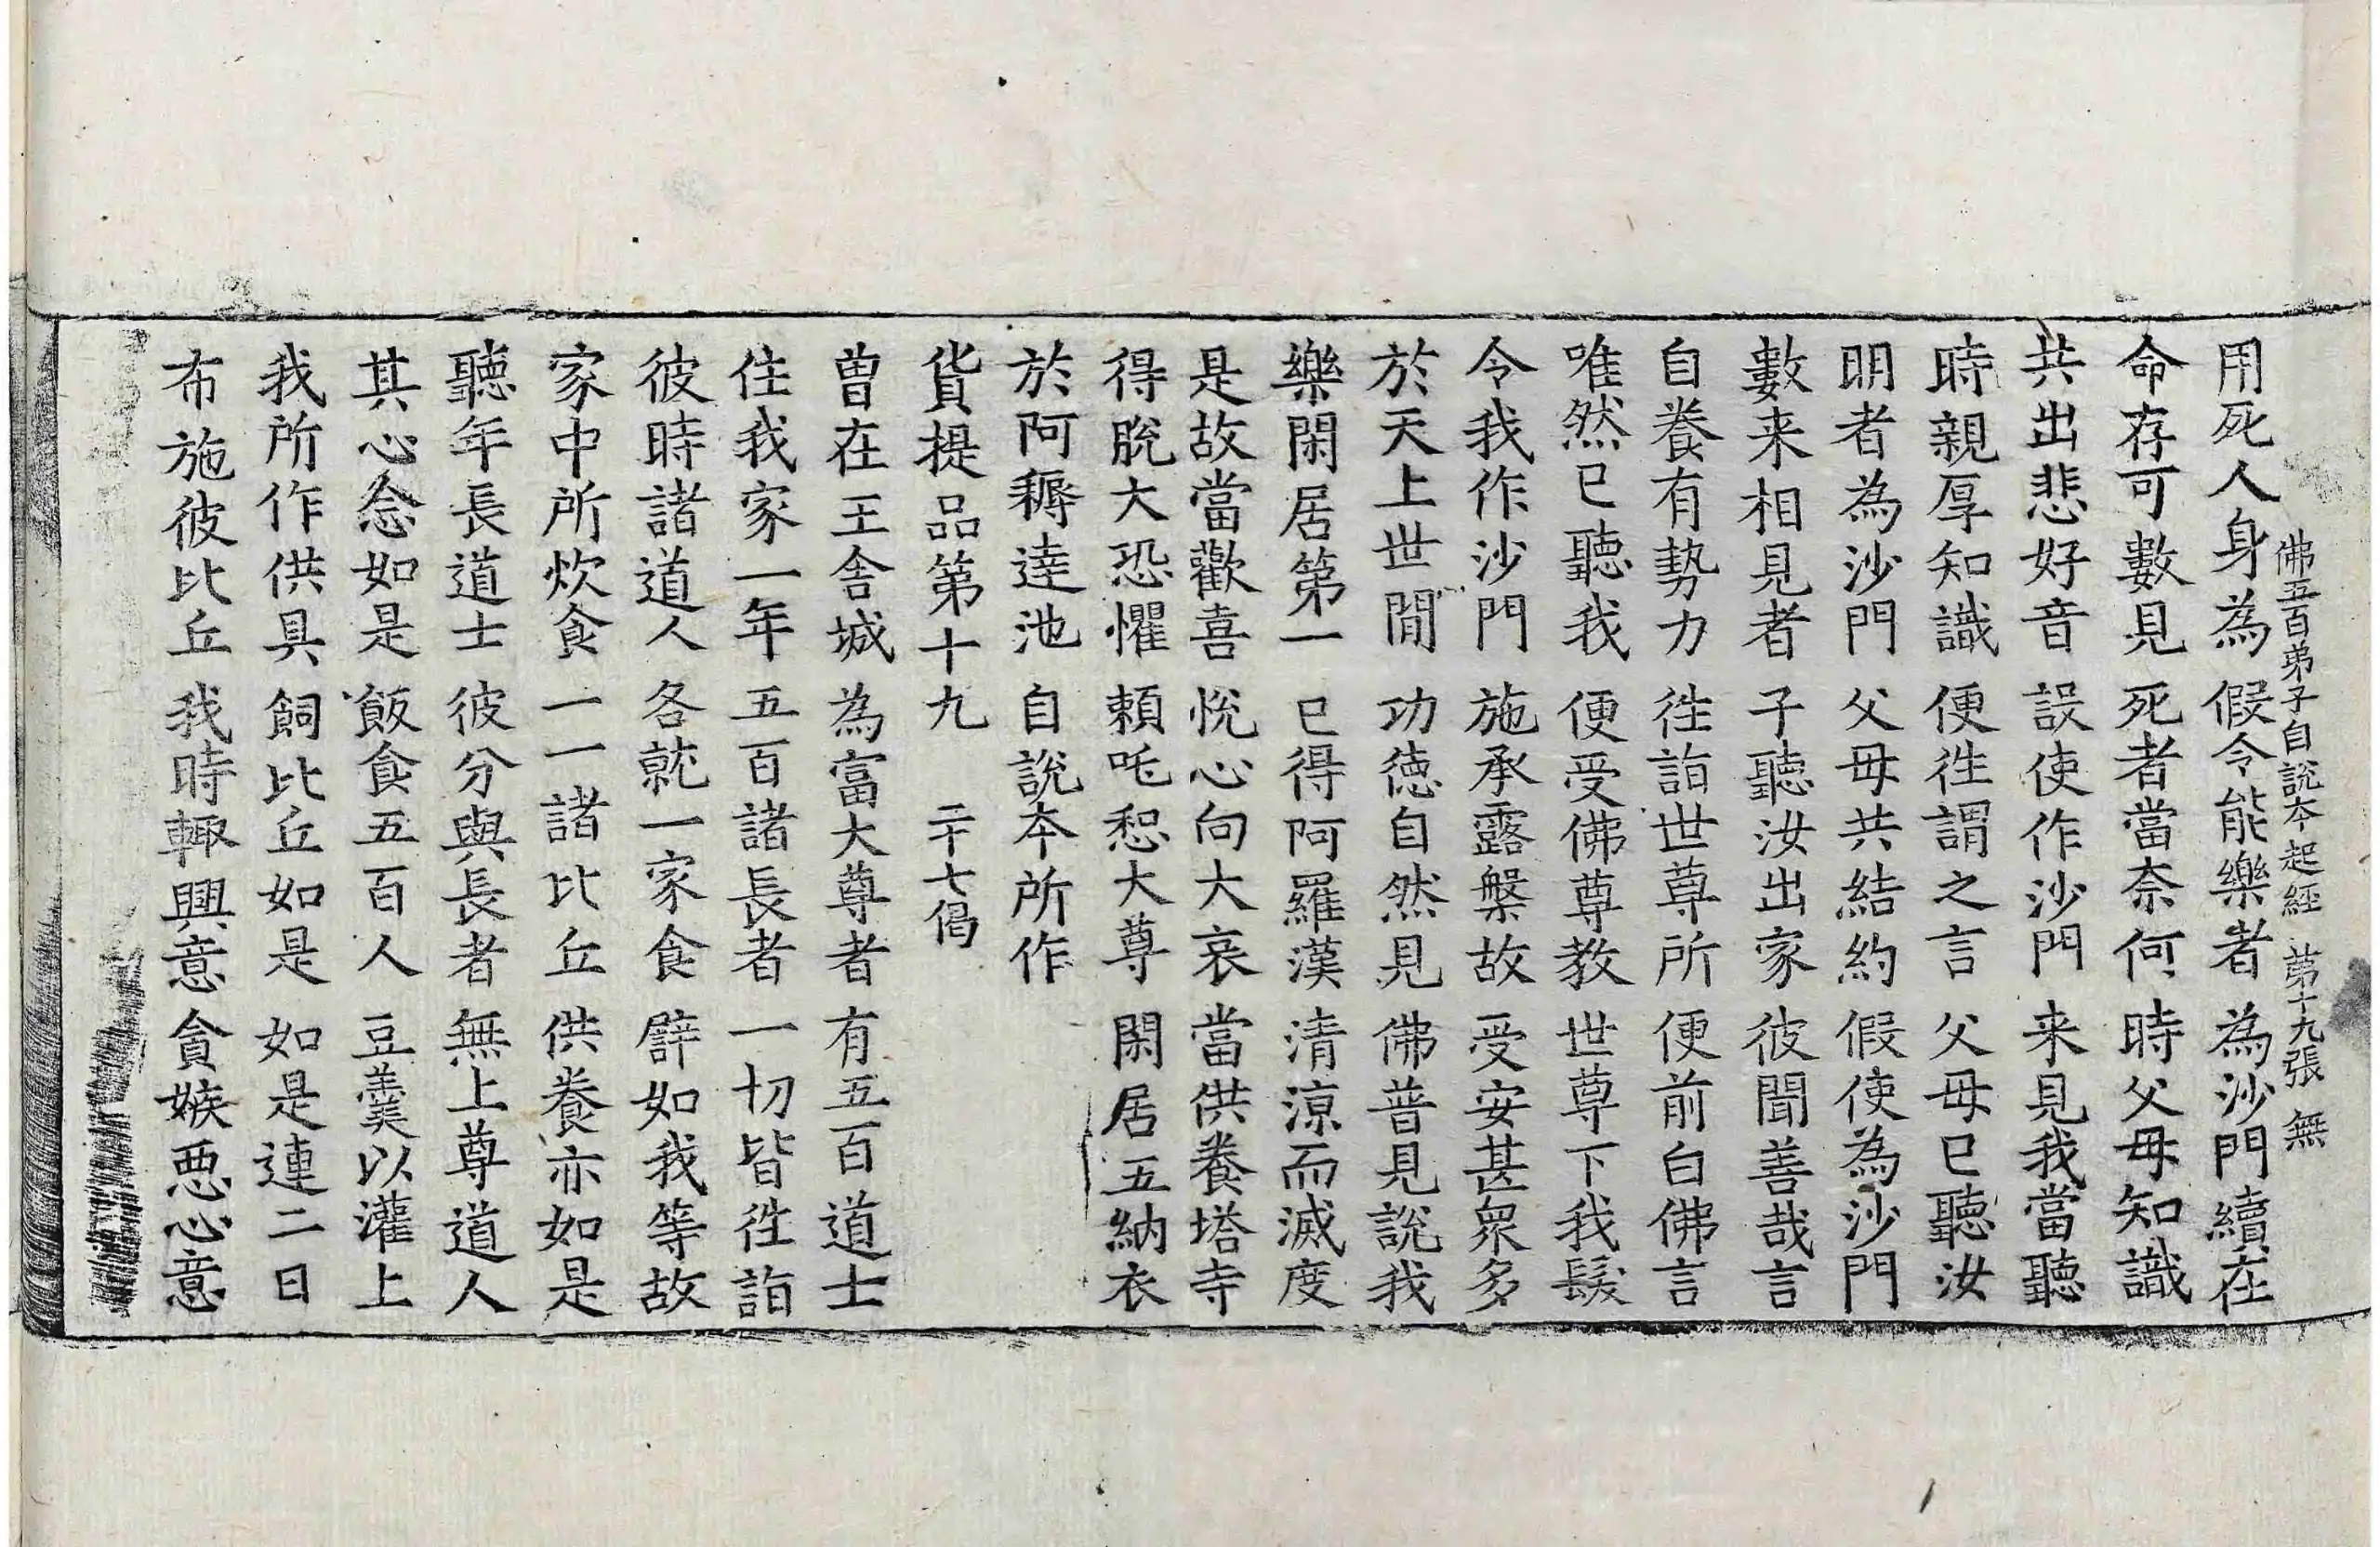 佛五百弟子自說本起經 第十九張 無
用死人身為 假令能樂者 為沙門續在
命存可數見 死者當奈何 時父母知識
共出悲好音 誤使作沙門 来見我當聽
時親厚知識 便徃謂之言 父母已聽汝
明者為沙門 父母共結約 假使為沙門
數来相見者 子聽汝出家 彼聞善哉言
自養有勢力 徃詣世尊所 便前白佛言
唯然已聽我 便受佛尊教 世尊下我髮
令我作沙門 施承露槃故 受安甚衆多
於天上世間 功德自然見 佛普見說我
樂閑居第一 已得阿羅漢 清涼而滅度
是故當歡喜 恱心向大哀 當供養塔寺
得脫大恐懼 頼吒惒大尊 閑居五納衣
於阿耨達池 自說本所作
貨提品第十九 二十七偈
曽在王舍城 為富大尊者 有五百道士
住我家一年 五百諸長者 一切皆徃詣
彼時諸道人 各就一家食 辟如我等故
家中所炊食 一一諸比丘 供養亦如是
聽年長道士 彼分與長者 無上尊道人
其心念如是 飯食五百人 豆羹以灌上
我所作供具 飼比丘如是 如是連二日
布施彼比丘 我時輙興意 貪嫉惡心意